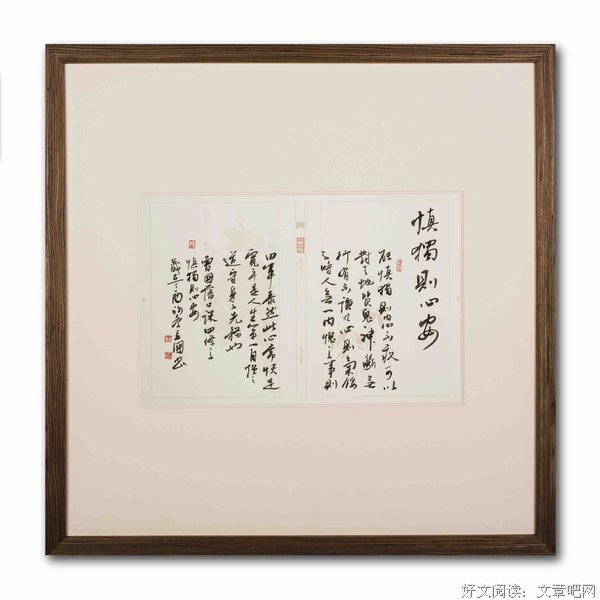 慎獨則心安
能慎獨則内省不疚可以
對天地質鬼神斷無
行有不慊於心則氣餒
之時人無一内愧之事則
天君泰然此心常快足
寬平是人生第一自强之
道守身之先務也
曾國藩日課四條之
慎獨則心安
好文阅读：文章吧网